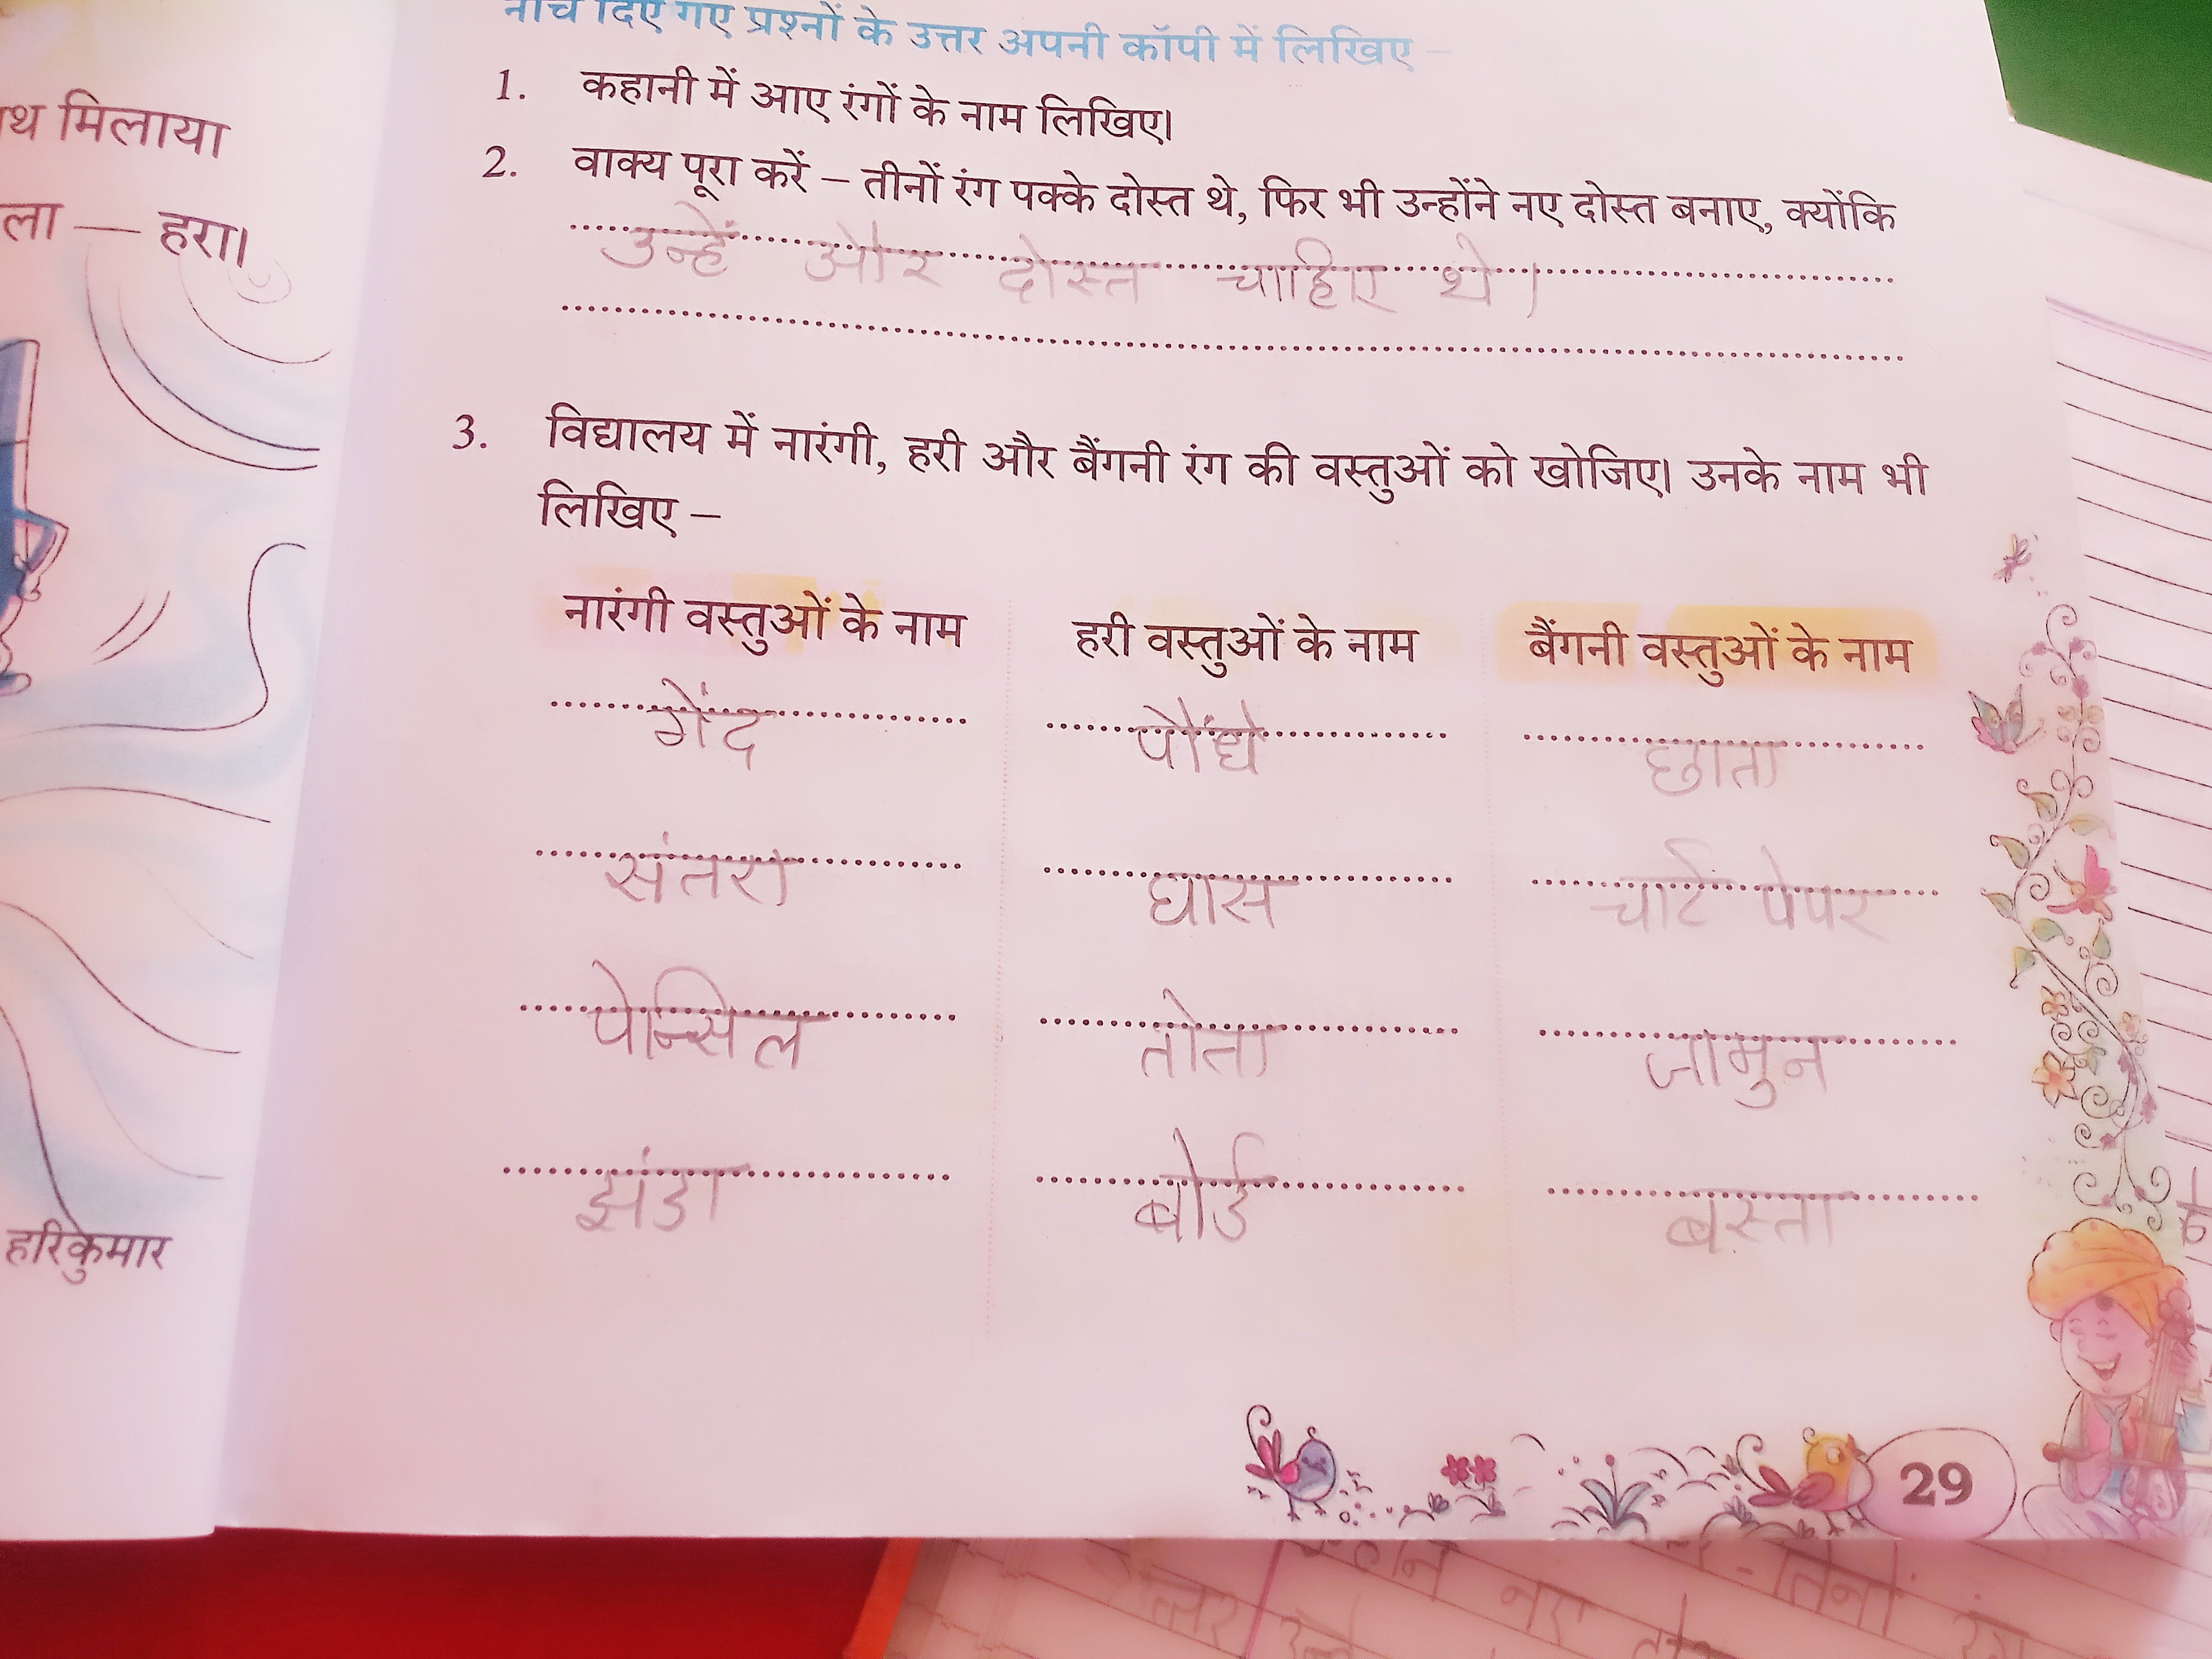 मिलाया
हरा।
हरिकुमार
नीचे दिए गए प्रश्नों के उत्तर अपनी कॉपी में लिखिए –
1. कहानी में आए रंगों के नाम लिखिए।
2. वाक्य पूरा करें – तीनों रंग पक्के दोस्त थे, फिर भी उन्होंने नए दोस्त बनाए, क्योंकि
उन्हें और दोस्त चाहिए थे।
3. विद्यालय में नारंगी, हरी और बैंगनी रंग की वस्तुओं को खोजिए। उनके नाम भी
लिखिए –
नारंगी वस्तुओं के नाम हरी वस्तुओं के नाम बैंगनी वस्तुओं के नाम
गेंद पौंधे छाता
संतरा घास चार्ट पेपर
पेन्सिल तोता जामुन
झंडा बोर्ड बस्ता
29
नए
रंग